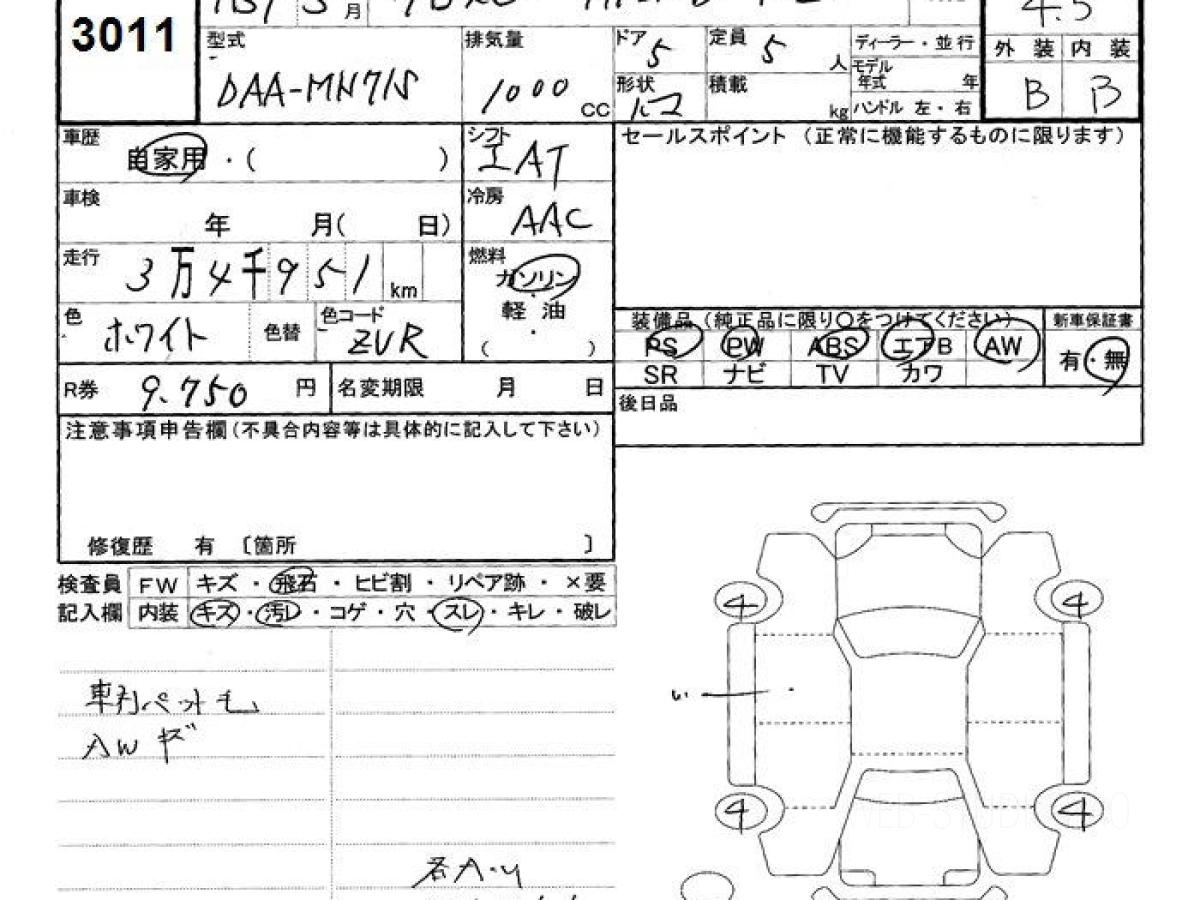 3011
月
4.5
型式
DAA-MN71S
排気量
1000 CC
ドア 5
定員 5 人
形状
積載 kg
ディーラー・並行
モデル年式 年
ハンドル 左・右
外装 内装
B B
車歴 自家用・( )
シフト
AT
セールスポイント (正常に機能するものに限ります)
車検 年 月( 日)
冷房 AAC
走行 3万4千951 km
燃料 ガソリン
軽油
・
( )
色 ホワイト
色替
色コード ZVR
装備品 (純正品に限り〇をつけてください)
新車保証書
PS PW ABS エアB AW
有・無
SR ナビ TV カワ
R券 9.750 円
名変期限 月 日
後日品
注意事項申告欄(不具合内容等は具体的に記入して下さい)
修復歴 有 〔箇所 〕
検査員 FW キズ・飛石・ヒビ割・リペア跡・×要
記入欄 内装 キズ・汚レ・コゲ・穴・スレ・キレ・破レ
4 4
AW キズ
4 4
各A・U